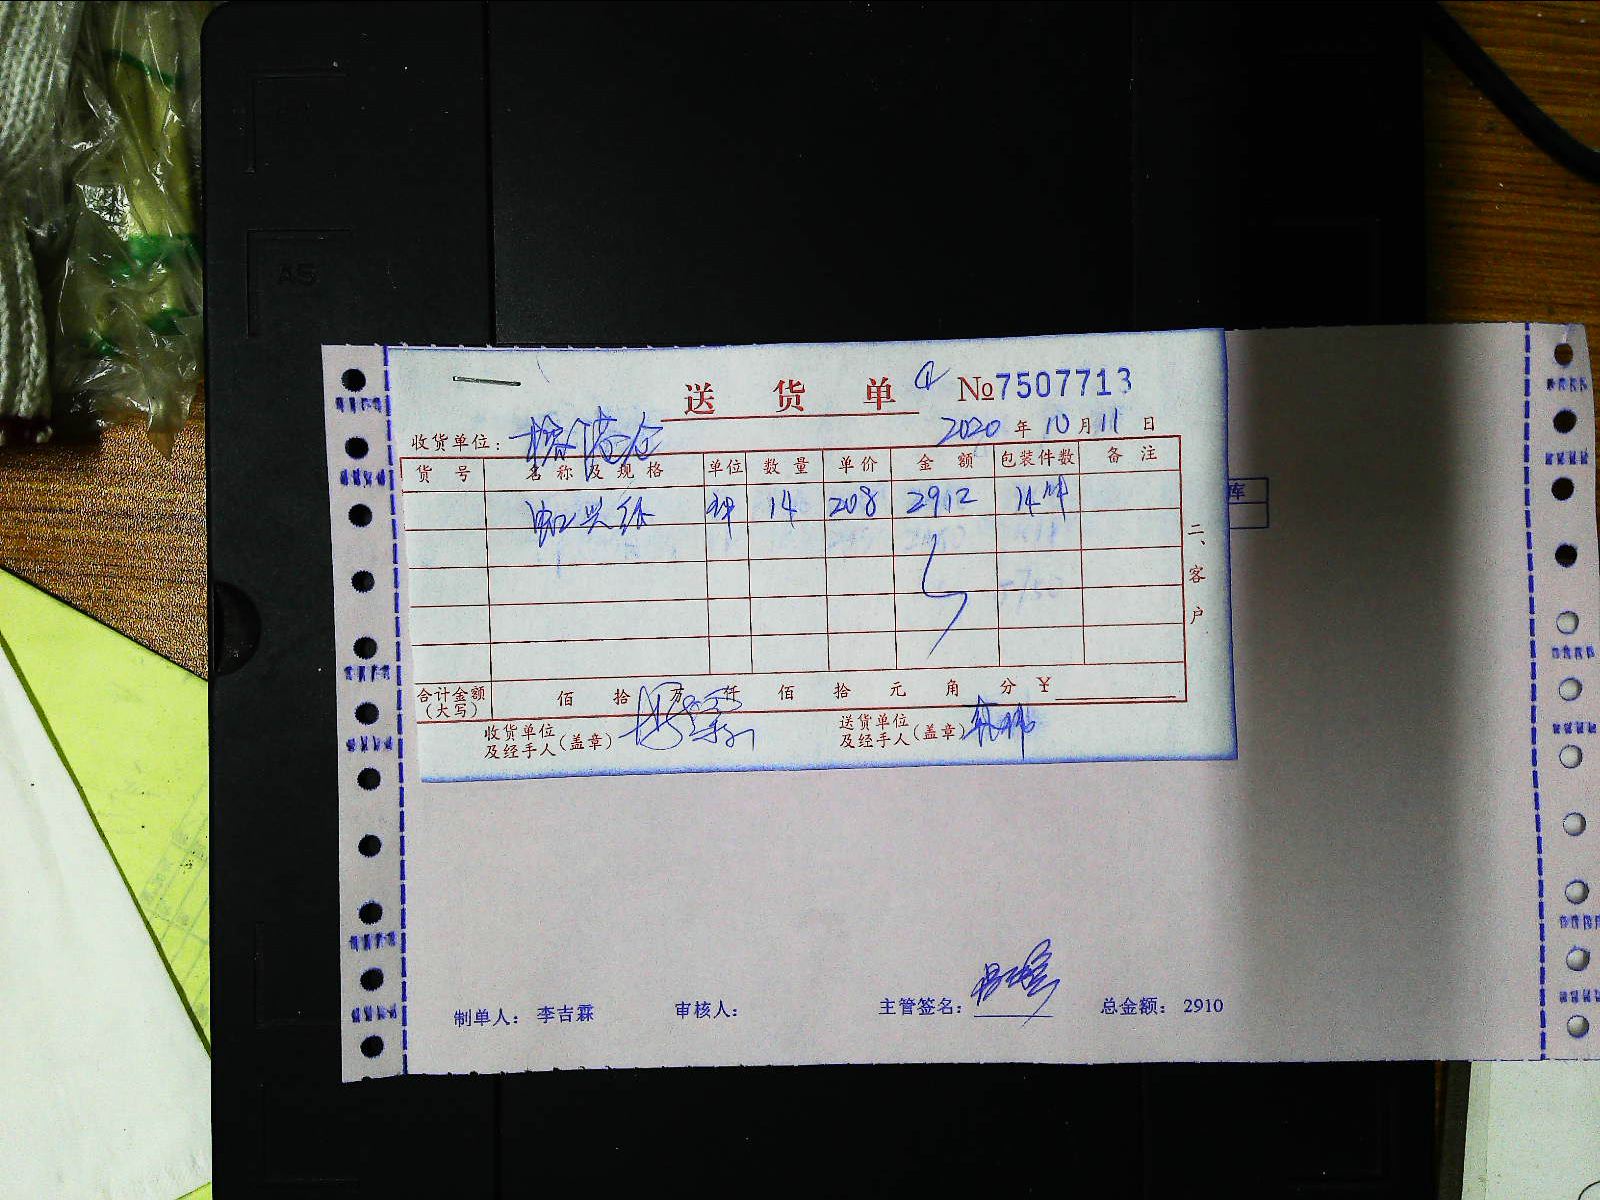 送 货 单 №7507713
收货单位:
2020 年 10 月 11 日
货 号 名 称 及 规 格 单位 数 量 单 价 金 额 包装件数 备 注
14 208 2912 14件
二、客户
合计金额(大写) 佰 拾 万 仟 佰 拾 元 角 分 ¥
收货单位及经手人(盖章)
送货单位及经手人(盖章)
库
制单人: 李吉霖 审核人: 主管签名: 总金额: 2910
A5